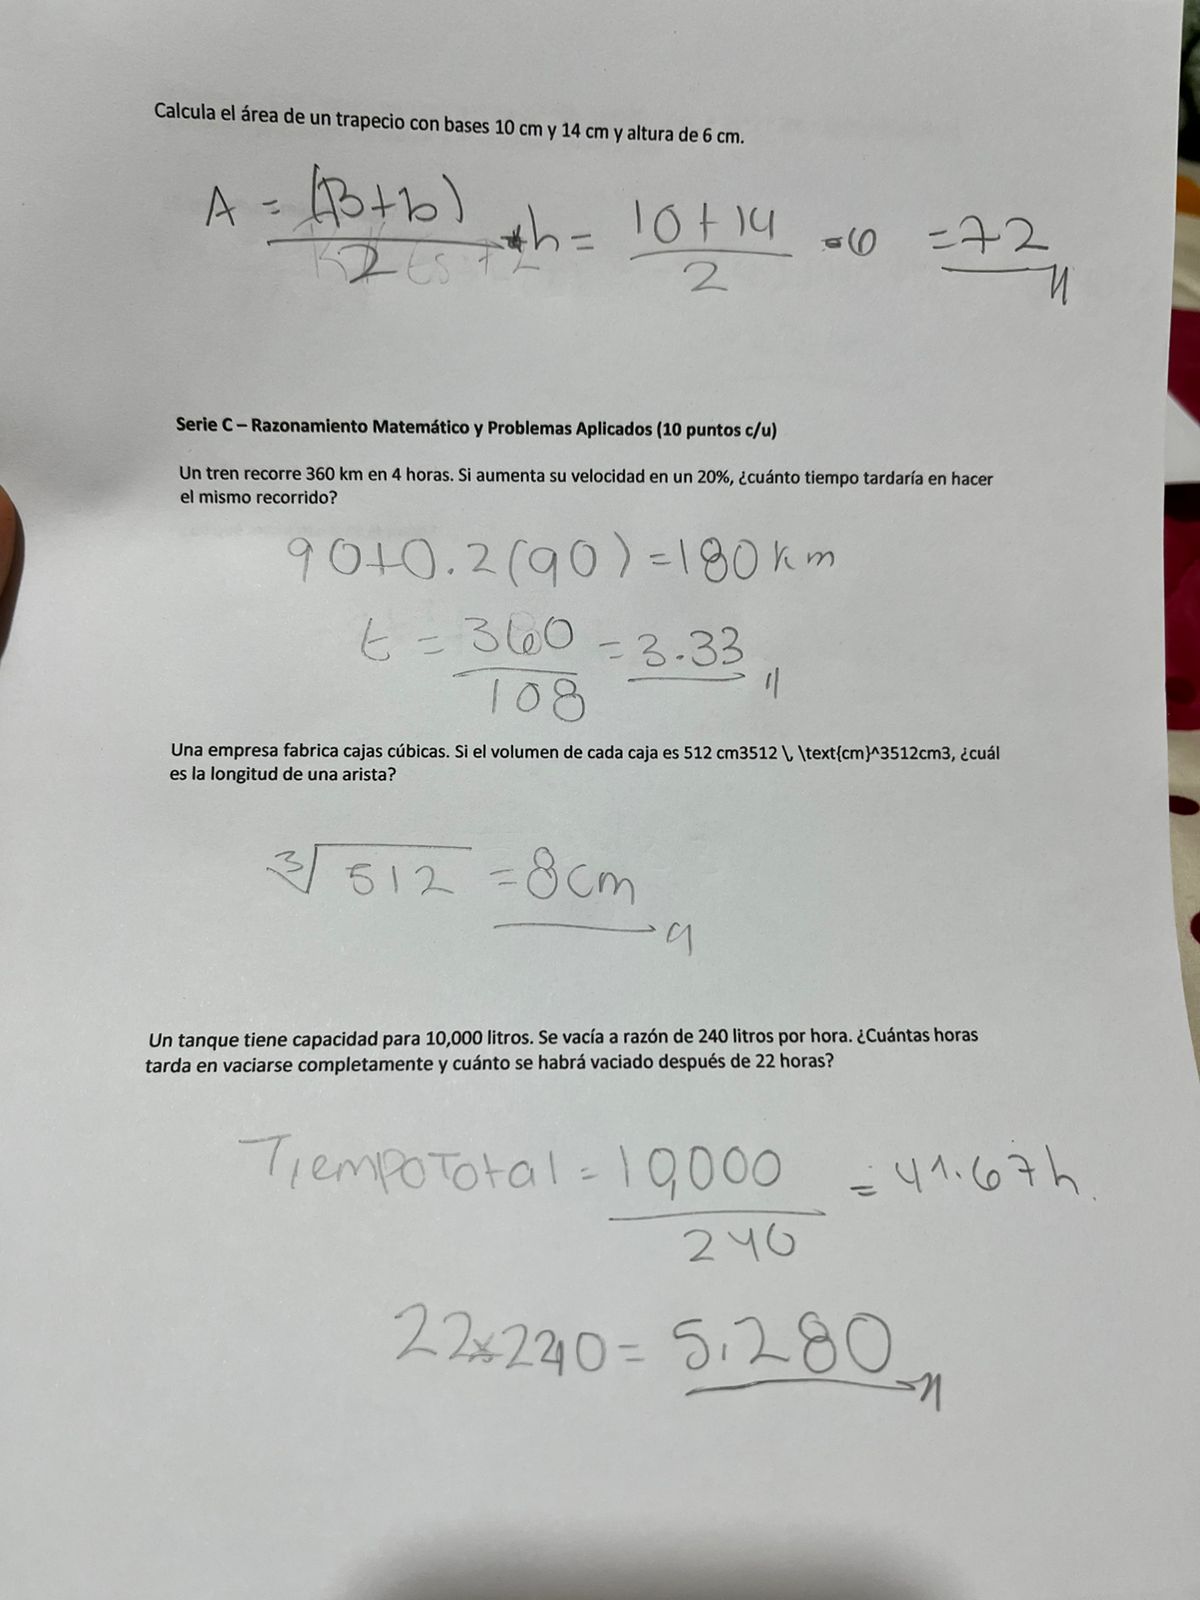 Calcula el área de un trapecio con bases 10 cm y 14 cm y altura de 6 cm.
A = (B+b)/2 * h = 10+14/2 • 6 = 72
Serie C – Razonamiento Matemático y Problemas Aplicados (10 puntos c/u)
Un tren recorre 360 km en 4 horas. Si aumenta su velocidad en un 20%, ¿cuánto tiempo tardaría en hacer
el mismo recorrido?
90+0.2(90)=180km
t = 360/108 = 3.33
Una empresa fabrica cajas cúbicas. Si el volumen de cada caja es 512 cm3512 \, \text{cm}^3512cm3, ¿cuál
es la longitud de una arista?
∛512 = 8cm
Un tanque tiene capacidad para 10,000 litros. Se vacía a razón de 240 litros por hora. ¿Cuántas horas
tarda en vaciarse completamente y cuánto se habrá vaciado después de 22 horas?
Tiempo Total = 10,000/240 = 41.67h.
22x240 = 5,280